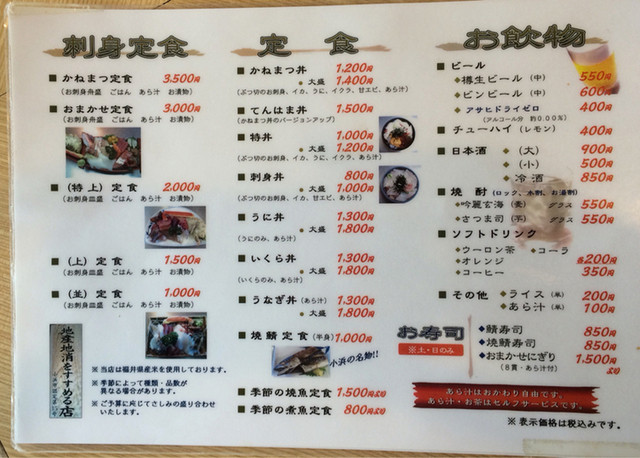 刺身定食
■ かねまつ定食 3,500円
(お刺身舟盛 ごはん あら汁 お漬物)
■ おまかせ定食 3,000円
(お刺身舟盛 ごはん あら汁 お漬物)
■ (特上) 定食 2,000円
(お刺身皿盛 ごはん あら汁 お漬物)
■ (上) 定食 1,500円
(お刺身皿盛 ごはん あら汁 お漬物)
■ (並) 定食 1,000円
(お刺身皿盛 ごはん あら汁 お漬物)
地産地消をすすめる店
※ 当店は福井県産米を使用しております。
※ 季節によって種類・品数が
異なる場合があります。
※ ご予算に応じてさしみの盛り合わせ
いたします。
定食
■ かねまつ丼 1,200円
◆ 大盛 1,400円
(ぶつ切のお刺身、イカ、うに、イクラ、甘エビ、あら汁)
■ てんはま丼 1,500円
(かねまつ丼のバージョンアップ)
■ 特丼 1,000円
◆ 大盛 1,200円
(ぶつ切のお刺身、イカ、うに、イクラ、あら汁)
■ 刺身丼 800円
◆ 大盛 1,000円
(ぶつ切のお刺身、イカ、甘エビ、あら汁)
■ うに丼 1,300円
◆ 大盛 1,800円
(うにのみ、あら汁)
■ いくら丼 1,300円
◆ 大盛 1,800円
(いくらのみ、あら汁)
■ うなぎ丼 (あら汁) 1,300円
◆ 大盛 1,800円
■ 焼鯖定食 (半身) 1,000円
小浜の名物!!
■ 季節の焼魚定食 1,500円より
■ 季節の煮魚定食 800円より
お飲物
■ ビール
◆ 樽生ビール (中) 550円
◆ ビンビール (中) 600円
◆ アサヒドライゼロ 400円
(アルコール分 約0.00%)
■ チューハイ (レモン) 400円
■ 日本酒 ◆ (大) 900円
◆ (小) 500円
◆ 冷酒 850円
■ 焼酎 (ロック、水割、お湯割)
◆ 吟麗玄海 (麦) グラス 550円
◆ さつま司 (芋) グラス 550円
■ ソフトドリンク
◆ ウーロン茶 ◆ コーラ
◆ オレンジ 各200円
◆ コーヒー 350円
■ その他 ◆ ライス (単) 200円
◆ あら汁 (単) 100円
お寿司
※土・日のみ
◆ 鯖寿司 850円
◆ 焼鯖寿司 850円
◆ おまかせにぎり 1,500円より
(8貫・あら汁付)
あら汁はおかわり自由です。
あら汁・お茶はセルフサービスです。
※ 表示価格は税込みです。